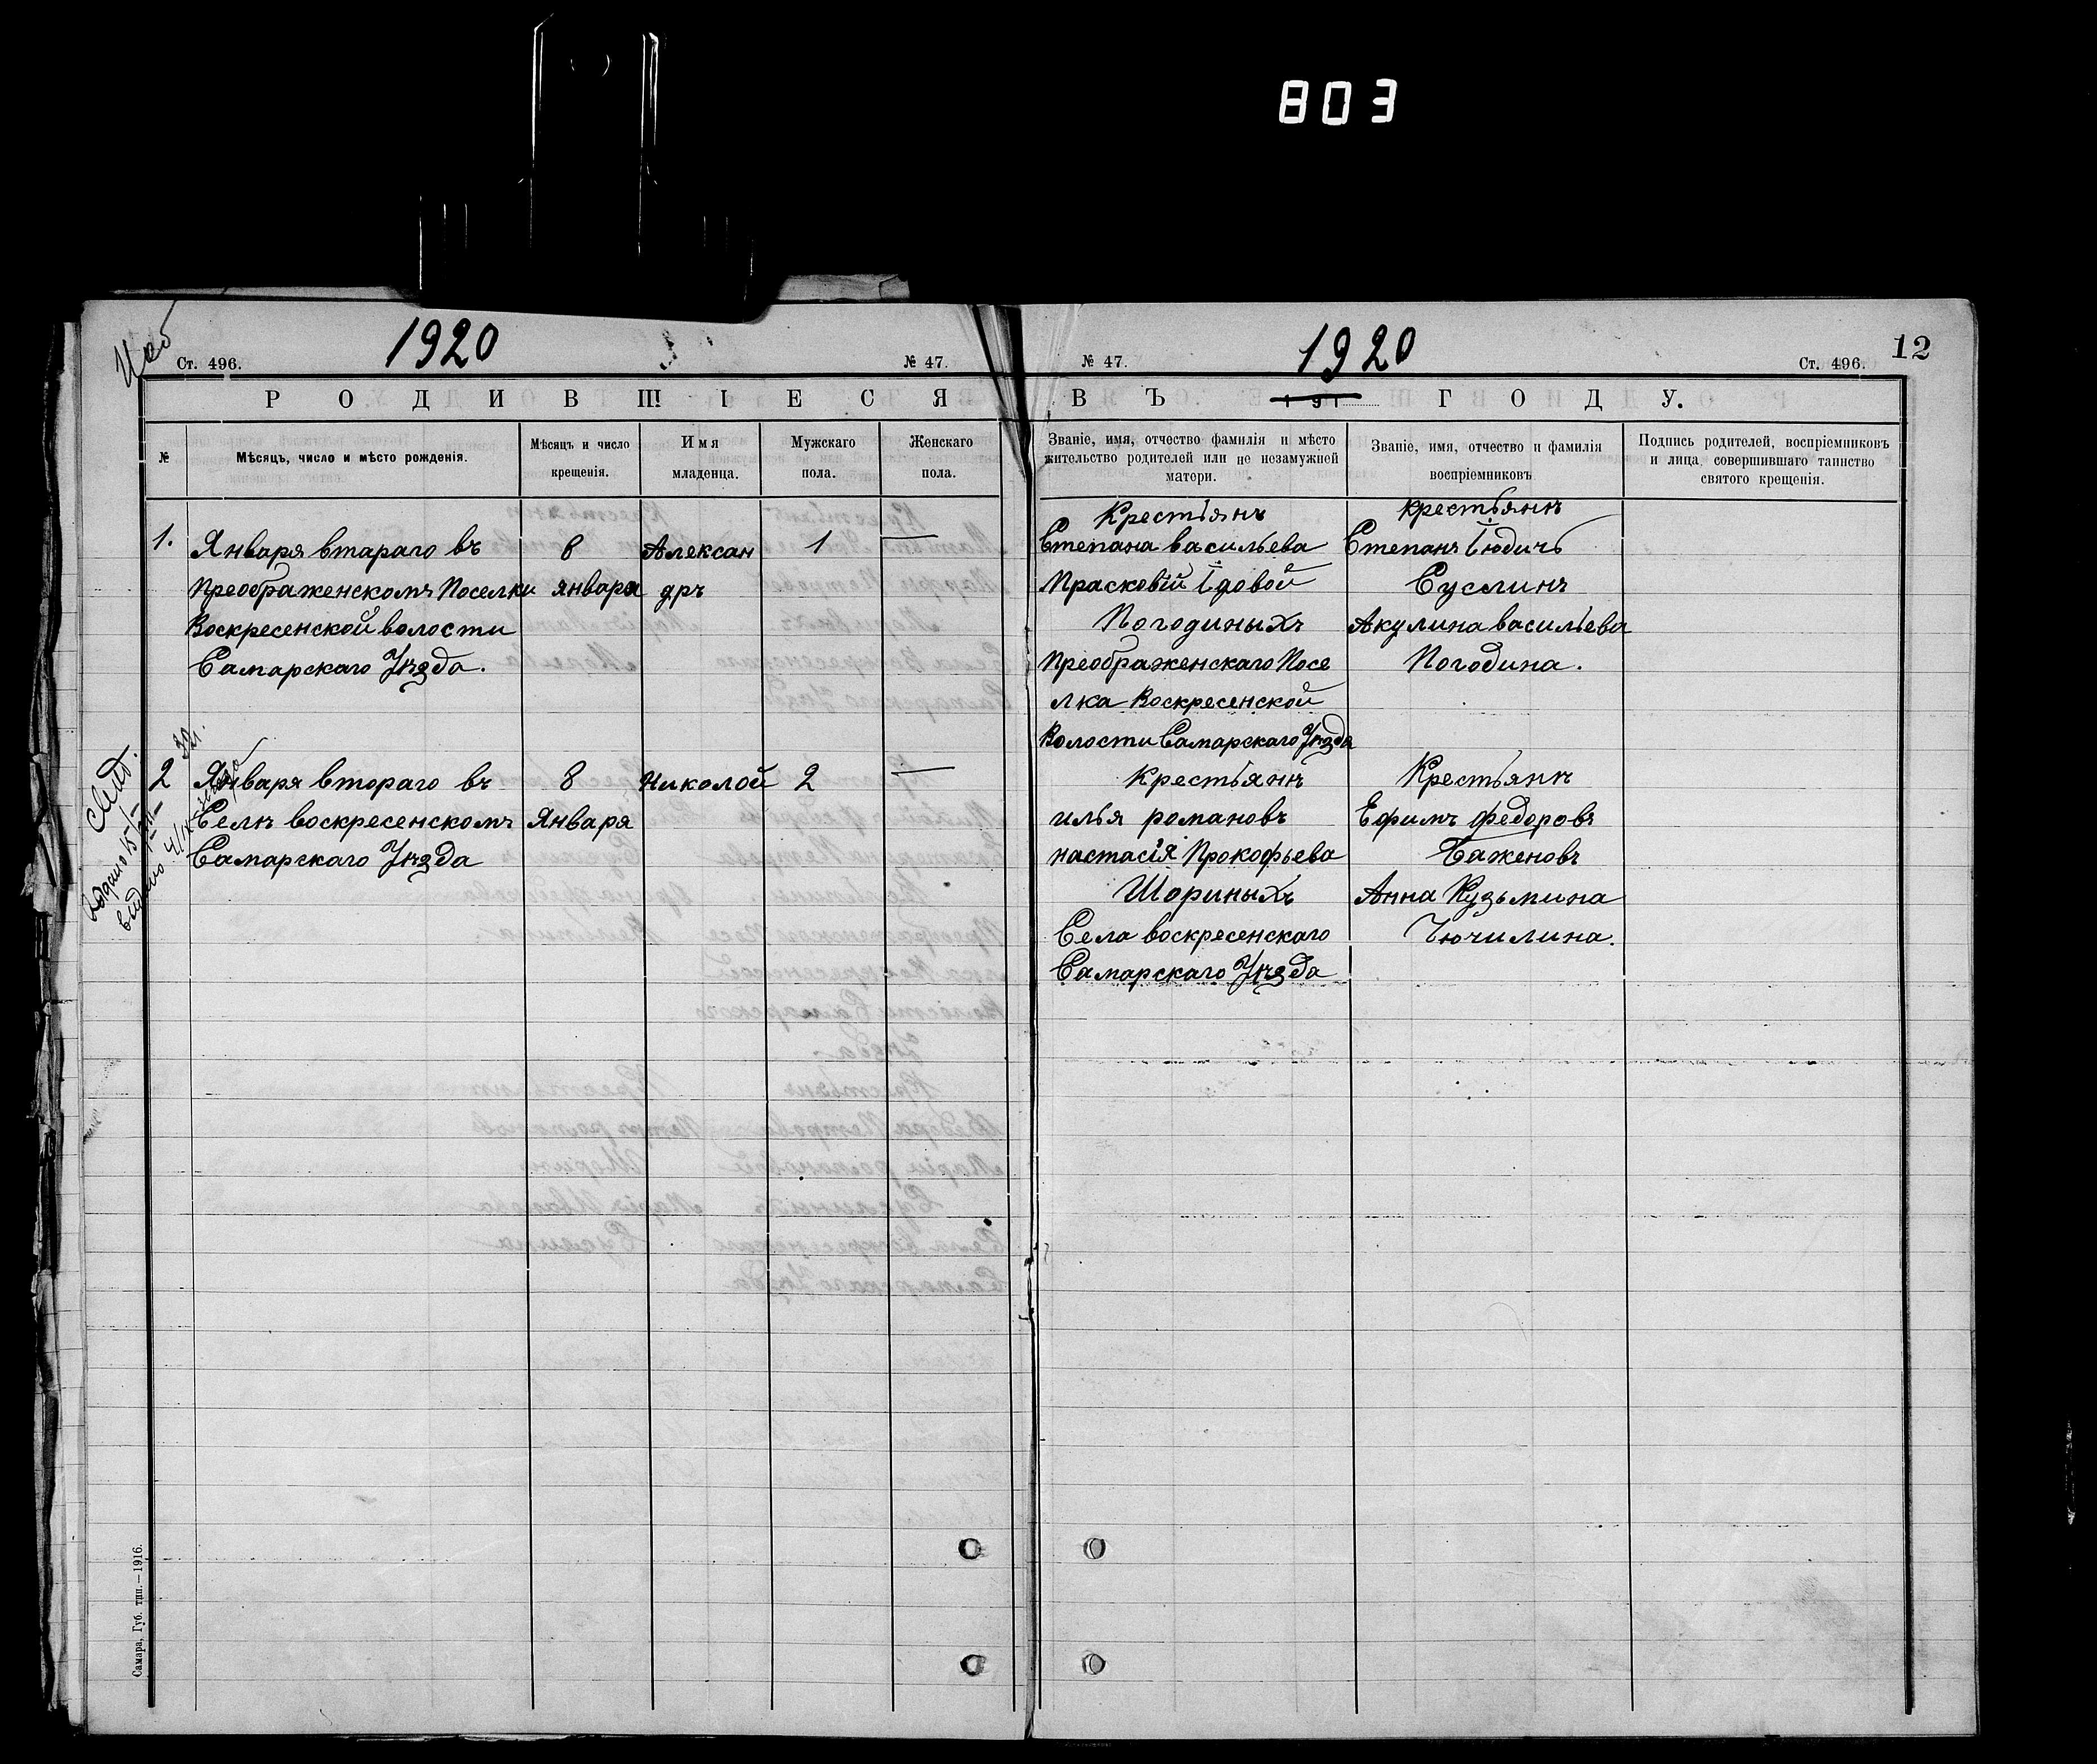 803
1920
Ст. 496.
№ 47.
РОДИВШІЕСЯ
№
Мѣсяцъ, число и мѣсто рожденія.
Мѣсяцъ и число
крещенія.
Имя
младенца.
Мужскаго
пола.
Женскаго
пола.
1.
Января втараго въ
Преображенскомъ Поселки
Воскресенской волости
Самарскаго Уѣзда.
8
января
Алексан
дръ
1
—
2
Января втораго въ
Селѣ воскресенскомъ
Самарскаго Уѣзда
8
Января
Николой
2
—
Самара, Губ. тип.—1916.
1920
12
№ 47.
Ст. 496.
ВЪ 191 ГОДУ.
Званіе, имя, отчество фамилія и мѣсто
жительство родителей или не незамужней
матери.
Званіе, имя, отчество и фамилія
воспріемниковъ
Подпись родителей, воспріемниковъ
и лица, совершившаго таинство
святого крещенія.
Крестьянъ
Степана васильева
Прасковій Їдовой
Погодиныхъ
Преображенскаго Посе
лка Воскресенской
Волости Самарскаго Уѣзда
крестьянѣ
Степанъ Їюдичь
Суслинъ
Акулина васильева
Погодина.
Крестьянѣ
илья романовъ
настасія Прокофьева
Шориныхъ
Села воскресенскаго
Самарскаго Уѣзда
Крестьянѣ
Ефимъ федоровъ
Баженовъ
Анна Кузьмина
Чючилина.